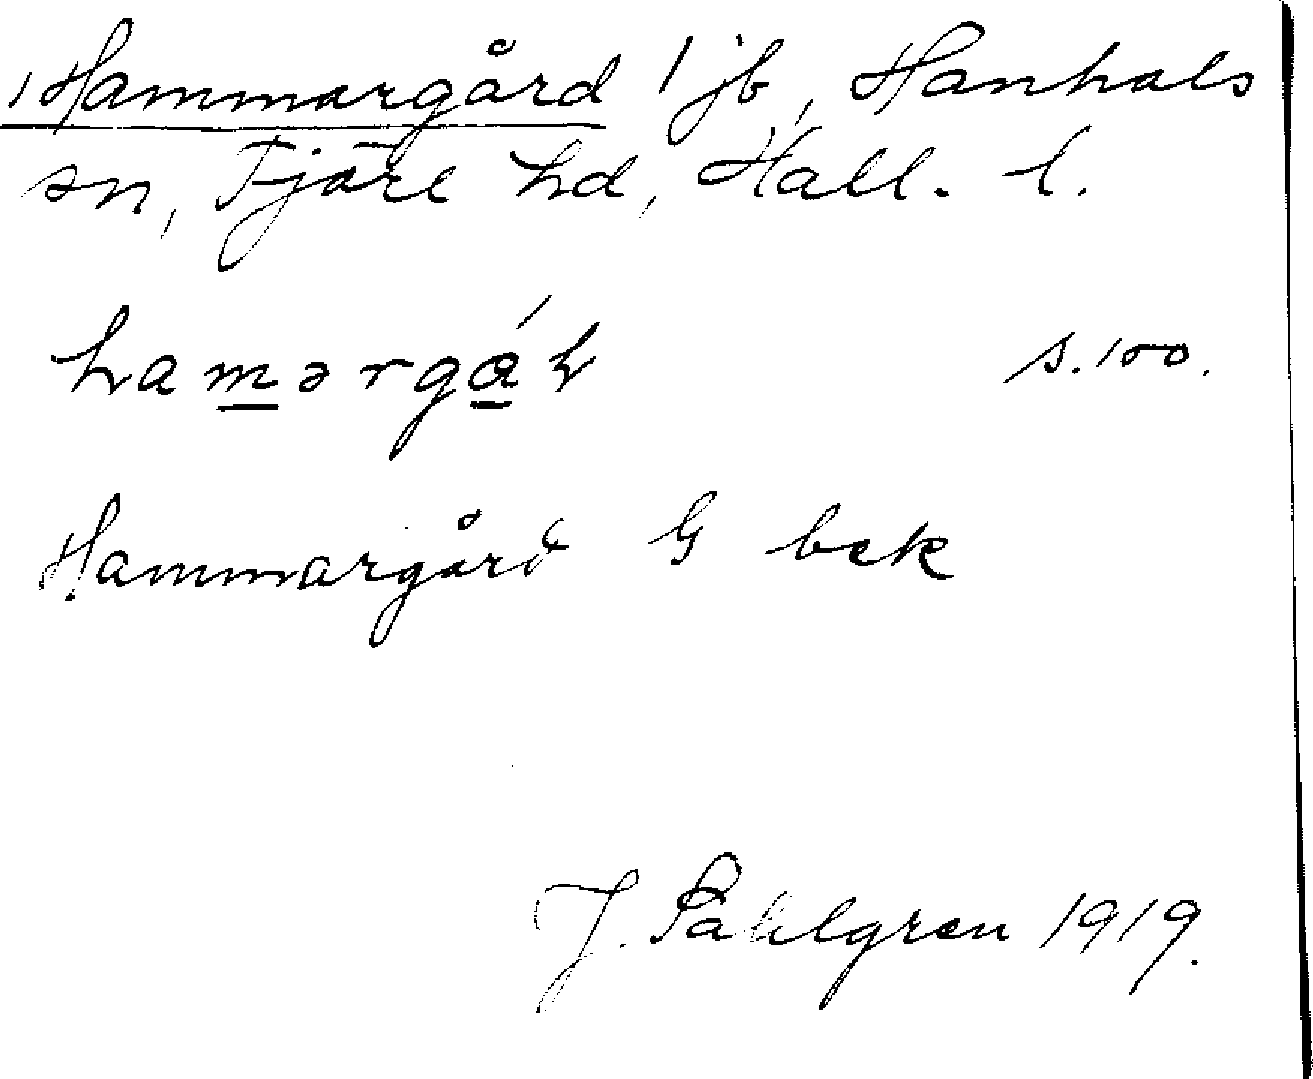 Hammargård 1 jb, Hanhals
sn, Fjäre hd, Hall. l.
s. 100.
Hammargård G bek
J. Sahlgren 1919.